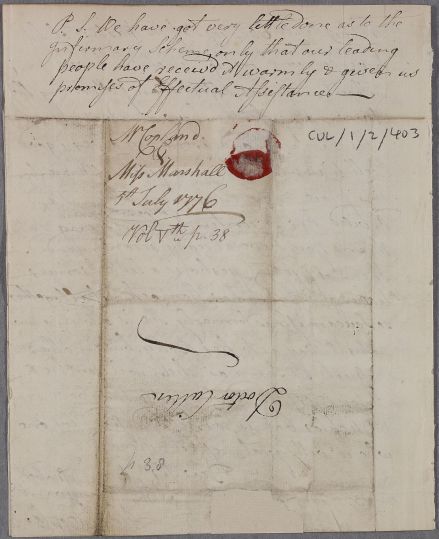 P.S. We have got very little done as to the
Infirmary Scheme, only that our leading
people have receivd it warmly & given us
promises of Effectual Assistance
Mr Copland
&
Miss Marshall
July 1776
Vol Vth p. 38
CUL/1/2/403
Doctor Cullen
p 38